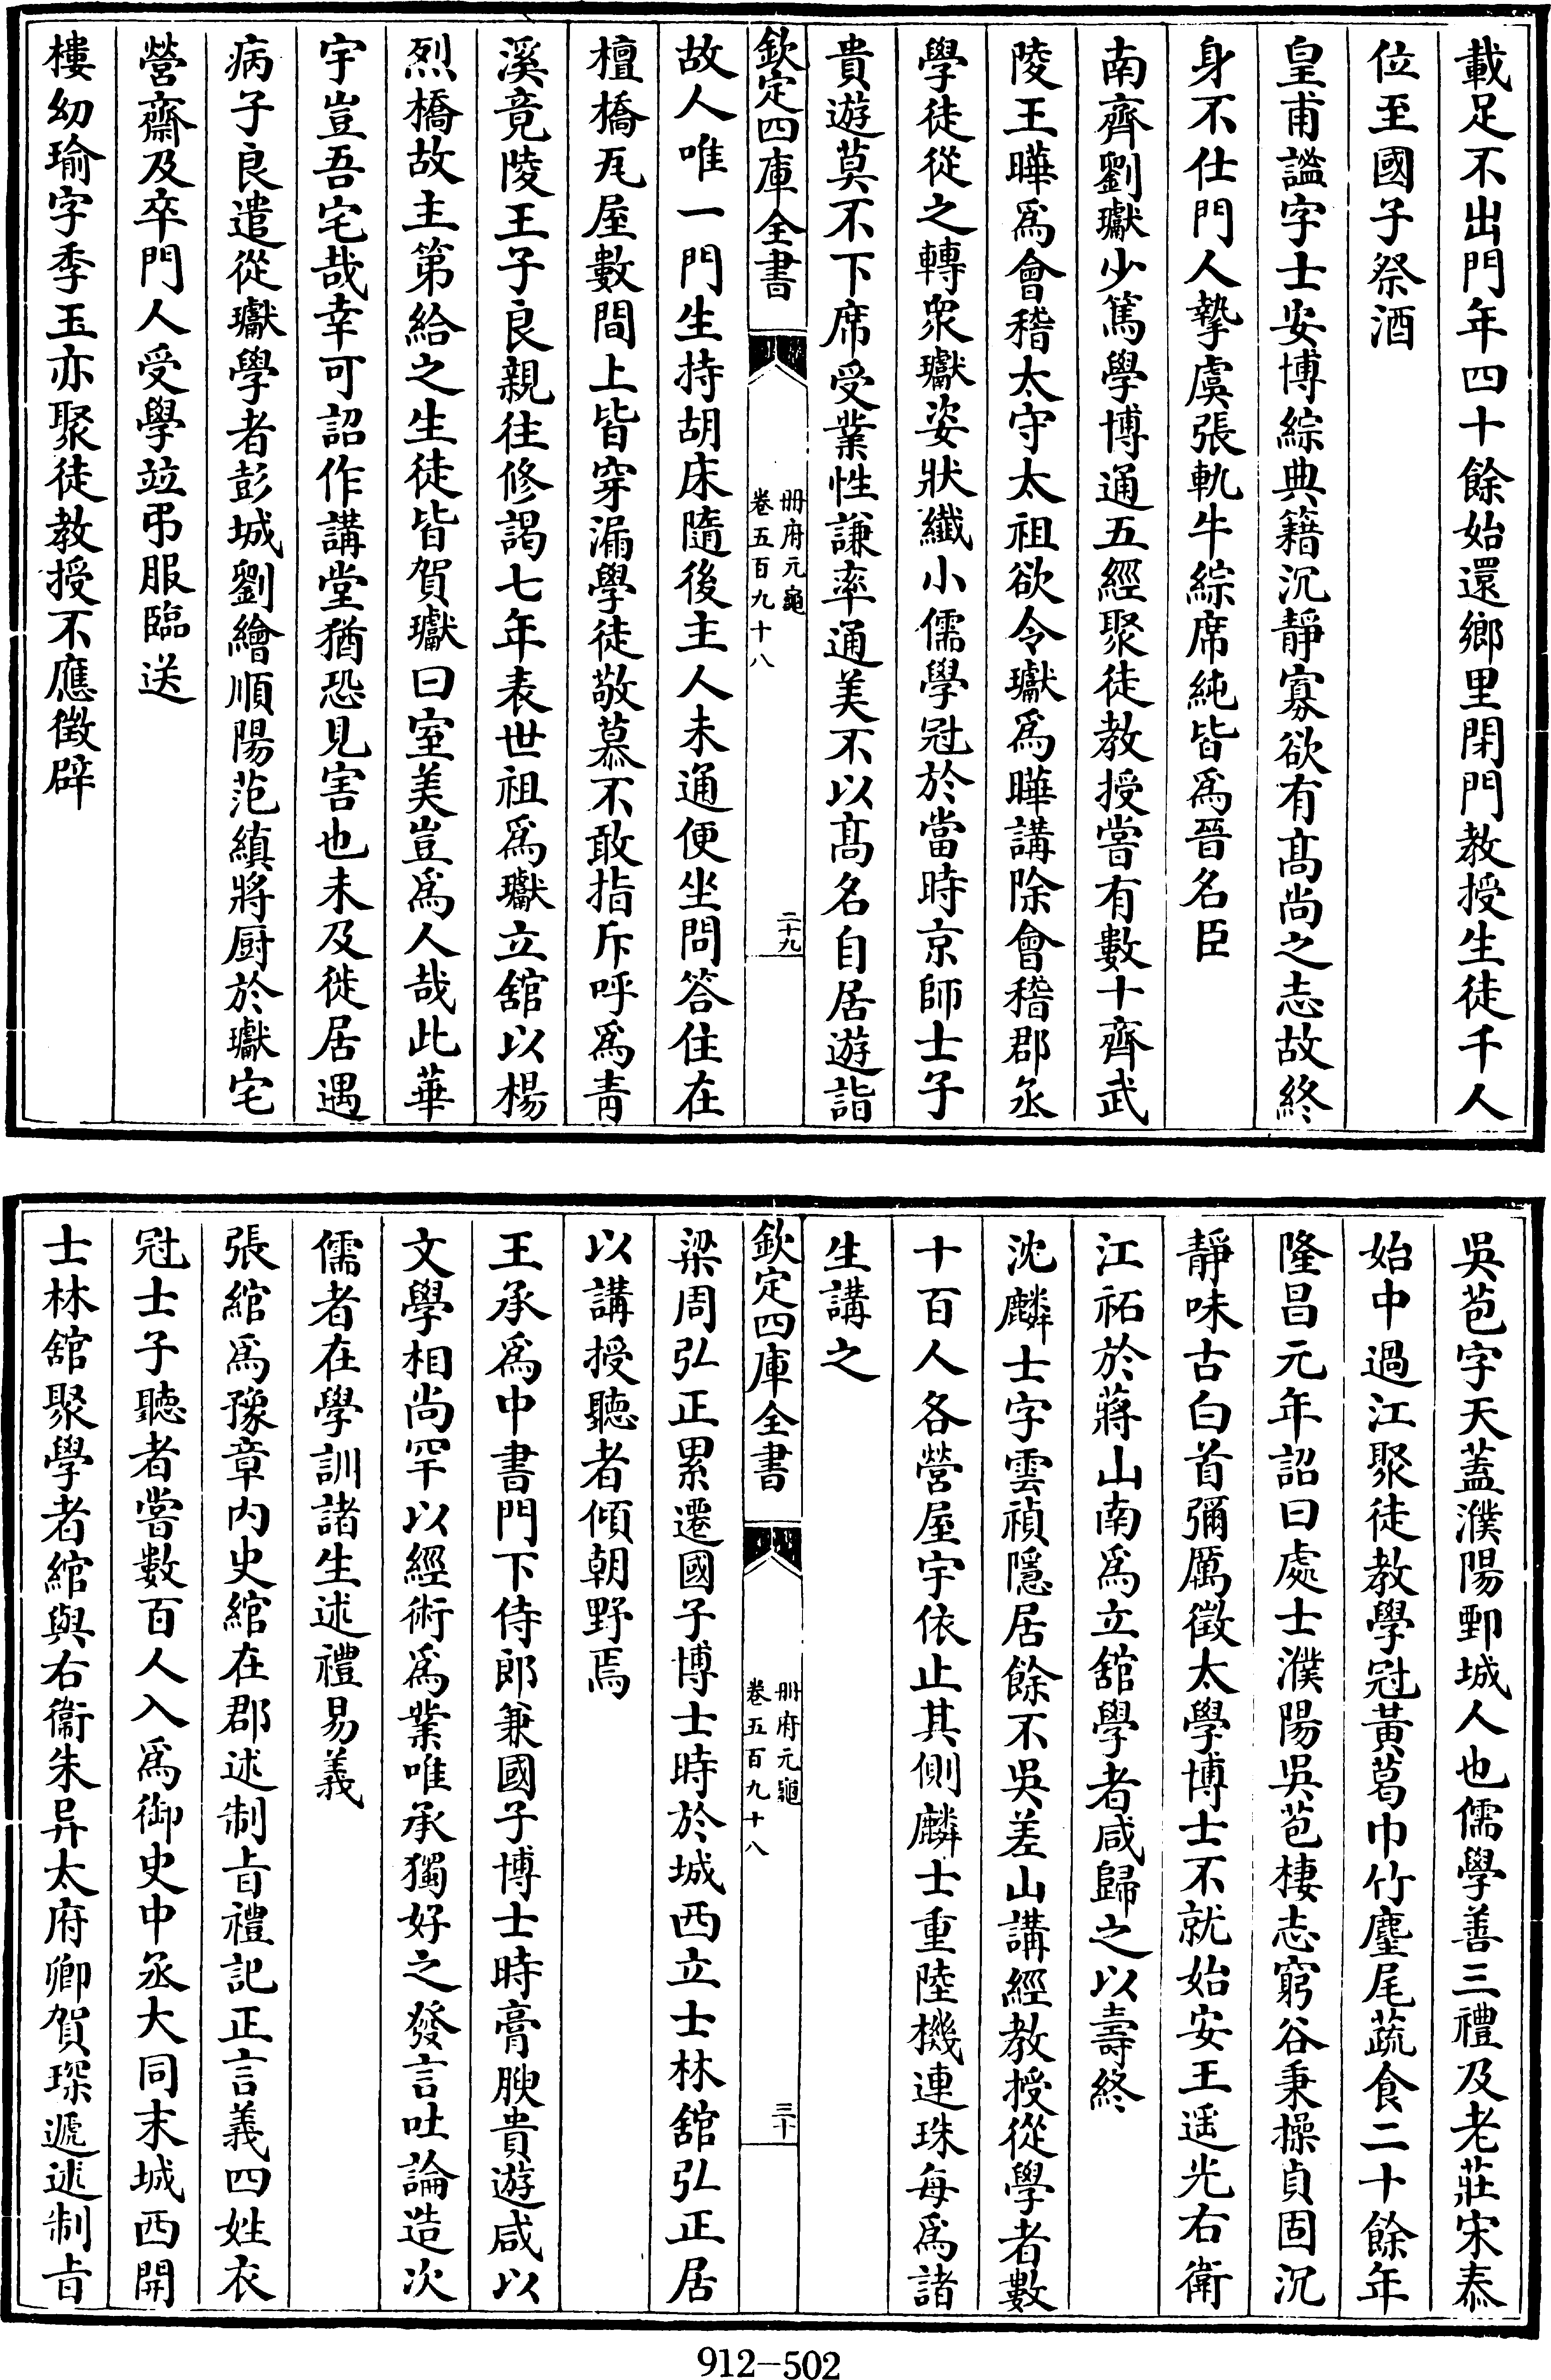 載足不出門年四十餘始還鄉里閉門教授生徒千人
位至國子祭酒
皇甫謐字士安博綜典籍沉靜寡欲有髙尚之志故終
身不仕門人摯虞張軌牛綜席純皆爲晉名臣
南齊劉瓛少篤學博通五經聚徒教授嘗有數十齊武
陵王曄爲會稽太守太祖欲令瓛爲曄講除會稽郡丞
學徒從之轉衆瓛姿狀纖小儒學冠於當時京師士子
貴遊莫不下席受業性謙率通美不以髙名自居遊詣
欽定四庫全書
冊府元龜
卷五百九十八
二十九
故人唯一門生持胡床隨後主人未通便坐問答住在
檀橋瓦屋數間上皆穿漏學徒敬慕不敢指斥呼爲青
溪竟陵王子良親往修謁七年表世祖爲瓛立舘以楊
烈橋故主第給之生徒皆賀瓛曰室美豈爲人哉此華
宇豈吾宅哉幸可詔作講堂猶恐見害也未及徙居遇
病子良遣從瓛學者彭城劉繪順陽范縝將厨於瓛宅
營齋及卒門人受學竝弔服臨送
樓幼瑜字季玉亦聚徒教授不應徵辟
吳苞字天蓋濮陽鄄城人也儒學善三禮及老莊宋泰
始中過江聚徒教學冠黃葛巾竹麈尾蔬食二十餘年
隆昌元年詔曰處士濮陽吳苞棲志窮谷秉操貞固沉
靜味古白首彌厲徵太學博士不就始安王遥光右衛
江祏於蔣山南爲立舘學者咸歸之以壽終
沈麟士字雲禎隱居餘不吳差山講經教授從學者數
十百人各營屋宇依止其側麟士重陸機連珠每爲諸
生講之
欽定四庫全書
冊府元龜
卷五百九十八
三十
梁周弘正累遷國子博士時於城西立士林舘弘正居
以講授聽者傾朝野焉
王承爲中書門下侍郎兼國子博士時膏腴貴遊咸以
文學相尚罕以經術爲業唯承獨好之發言吐論造次
儒者在學訓諸生述禮易義
張綰爲豫章内史綰在郡述制㫖禮記正言義四姓衣
冠士子聽者嘗數百人入爲御史中丞大同末城西開
士林舘聚學者綰與右衞朱异太府卿賀琛遞述制㫖
912-502